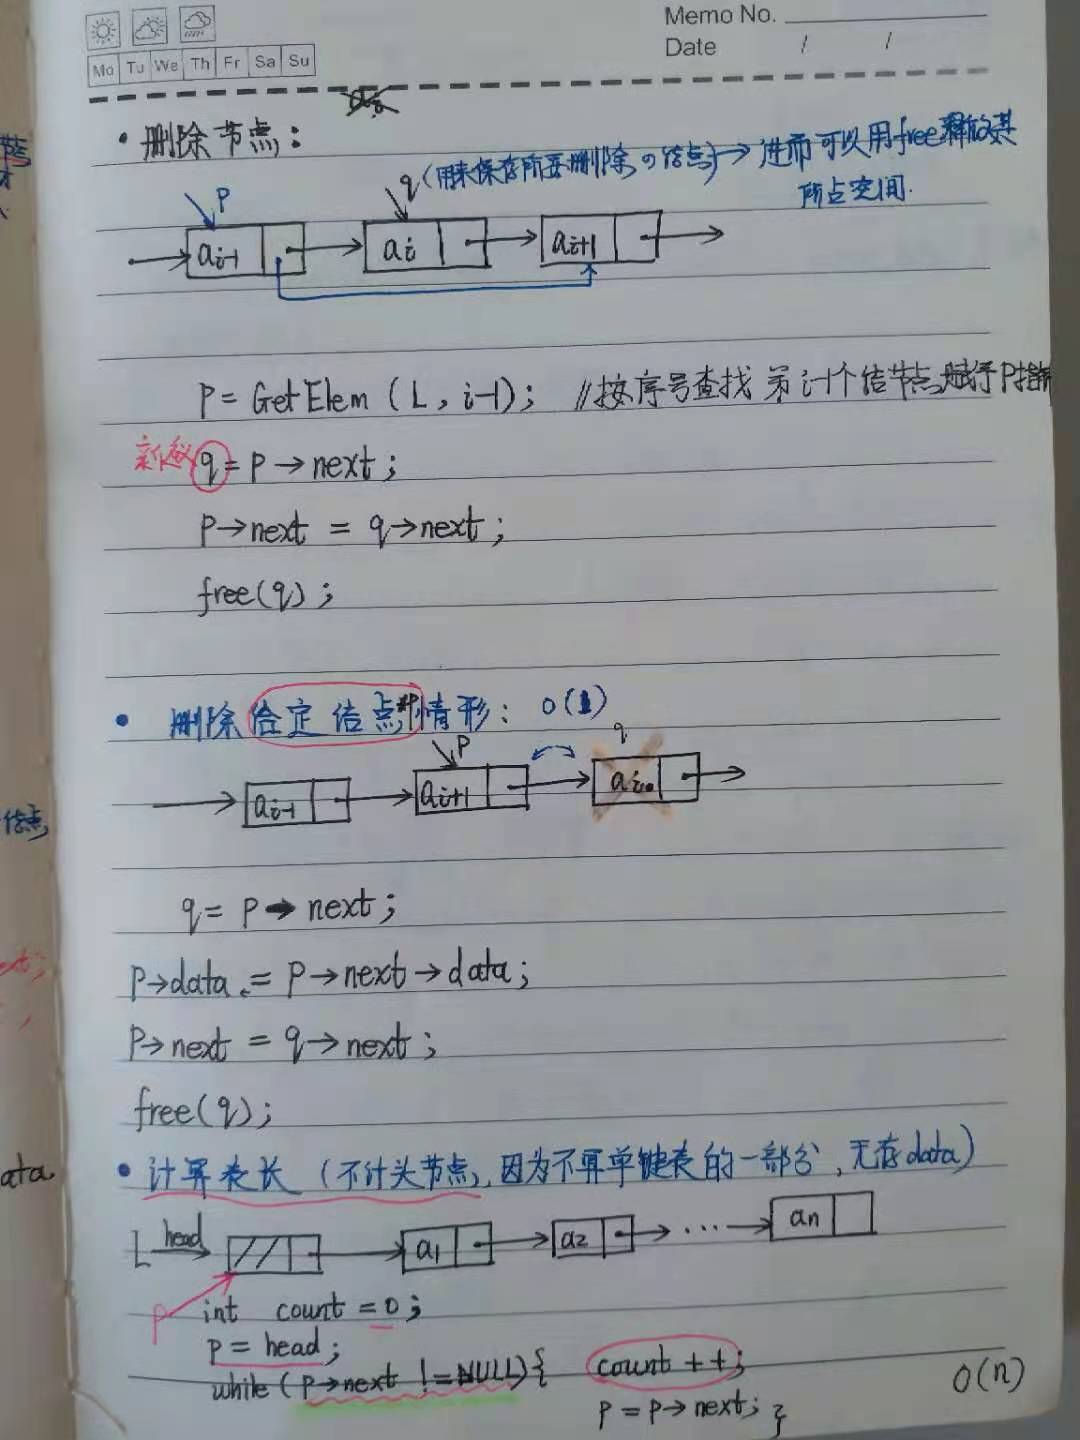 Memo No.
Date / /
Mo Tu We Th Fr Sa Su
• 删除节点:
q(用来保存所要删除的结点)→进而可以用free释放其
所占空间.
p
ai-1 ai ai+1
p = GetElem (L, i-1); //按序号查找 第i-1个结节点,赋予p指针
q = p→next;
p→next = q→next;
free(q);
• 删除给定结点的情形: O(1)
p q
ai-1 ai+1
q = p→next;
p→data = p→next→data;
p→next = q→next;
free(q);
• 计算表长(不计头节点,因为不算单链表的一部分,无存data)
L head a1 a2 ... an
p
int count = 0;
p = head;
while (p→next != NULL){ count ++;
p = p→next; }
O(n)
结点
ata